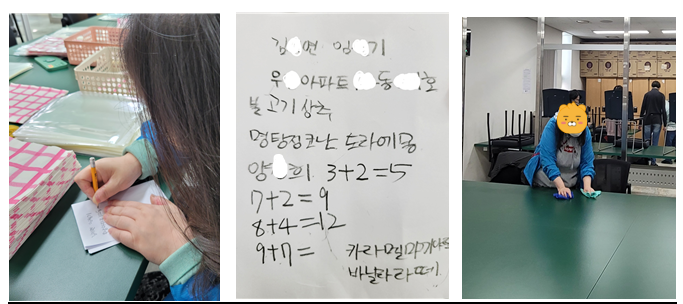 김 연 임 기
우 아파트 동 호
불고기 상추
명탐정코난 도라에몽
양 희 3+2=5
7+2=9
8+4=12
9+7= 카라멜마끼아또
바닐라라떼